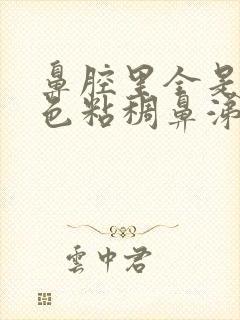 鼻腔里全是
色粘稠鼻涕
雲中君